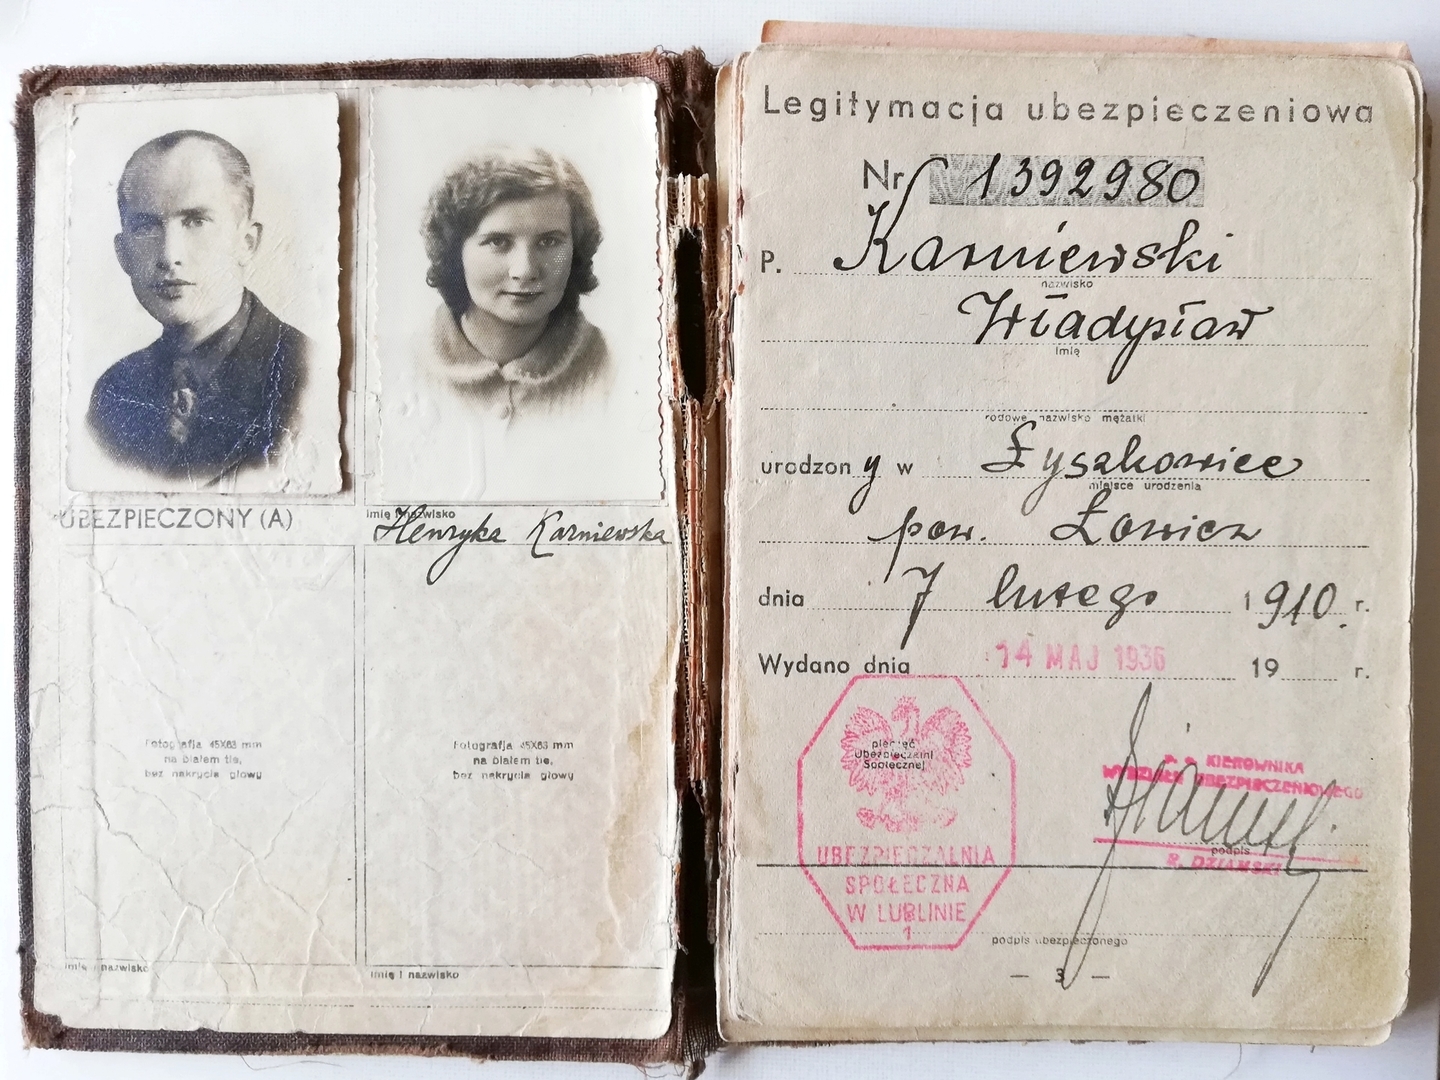 UBEZPIECZONY (A)
imię i nazwisko
Henryka Karniewska
Fotografja 45X63 mm
na białem tle,
bez nakrycia głowy
Fotografja 45X63 mm
na białem tle,
bez nakrycia głowy
imię i nazwisko
imię i nazwisko
Legitymacja ubezpieczeniowa
Nr 1392980
P. Karniewski
nazwisko
Władysław
imię
rodowe nazwisko mężatki
urodzony w Łyszkowice
miejsce urodzenia
pow. Łowicz
dnia 7 lutego 1910. r.
Wydano dnia 14 MAJ 1936 19 r.
pieczęć
Ubezpieczalni
Społecznej
UBEZPIECZALNIA
SPOŁECZNA
W LUBLINIE
1
p. o. KIEROWNIKA
WYDZIAŁU UBEZPIECZENIOWEGO
podpis
R. DZIAMSKI
podpis ubezpieczonego
— 3 —